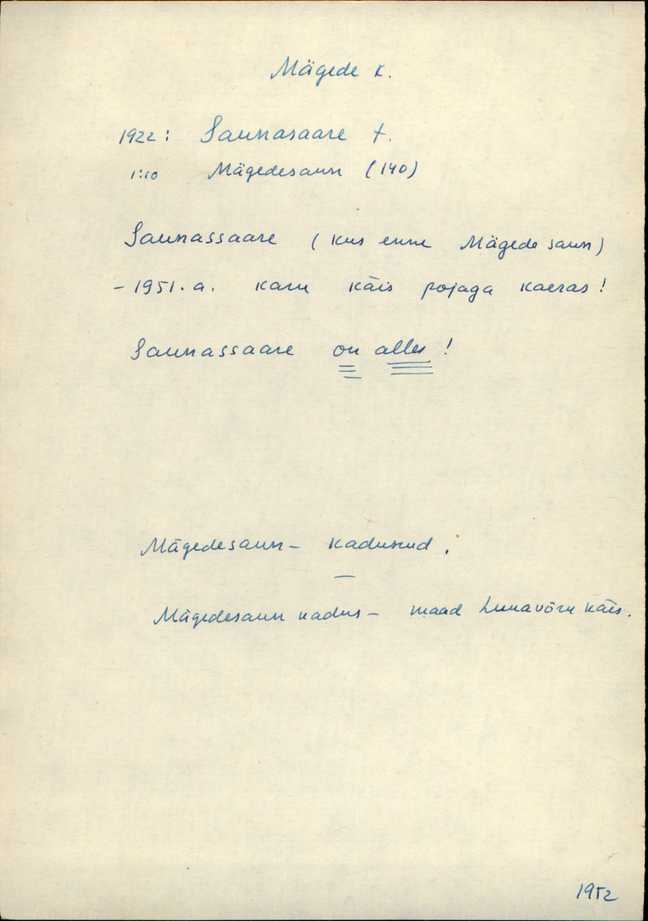 Mägede k.
1922: Saunasaare t.
1:10 Mägedesaun (140)
Saunassaare (kus enne Mägede saun)
- 1951. a. karu käis pojaga kaeras!
Saunassaare on alles!
Mägedesaun - kadunud.
—
Mägedesaun kadus - maad käis.
1952